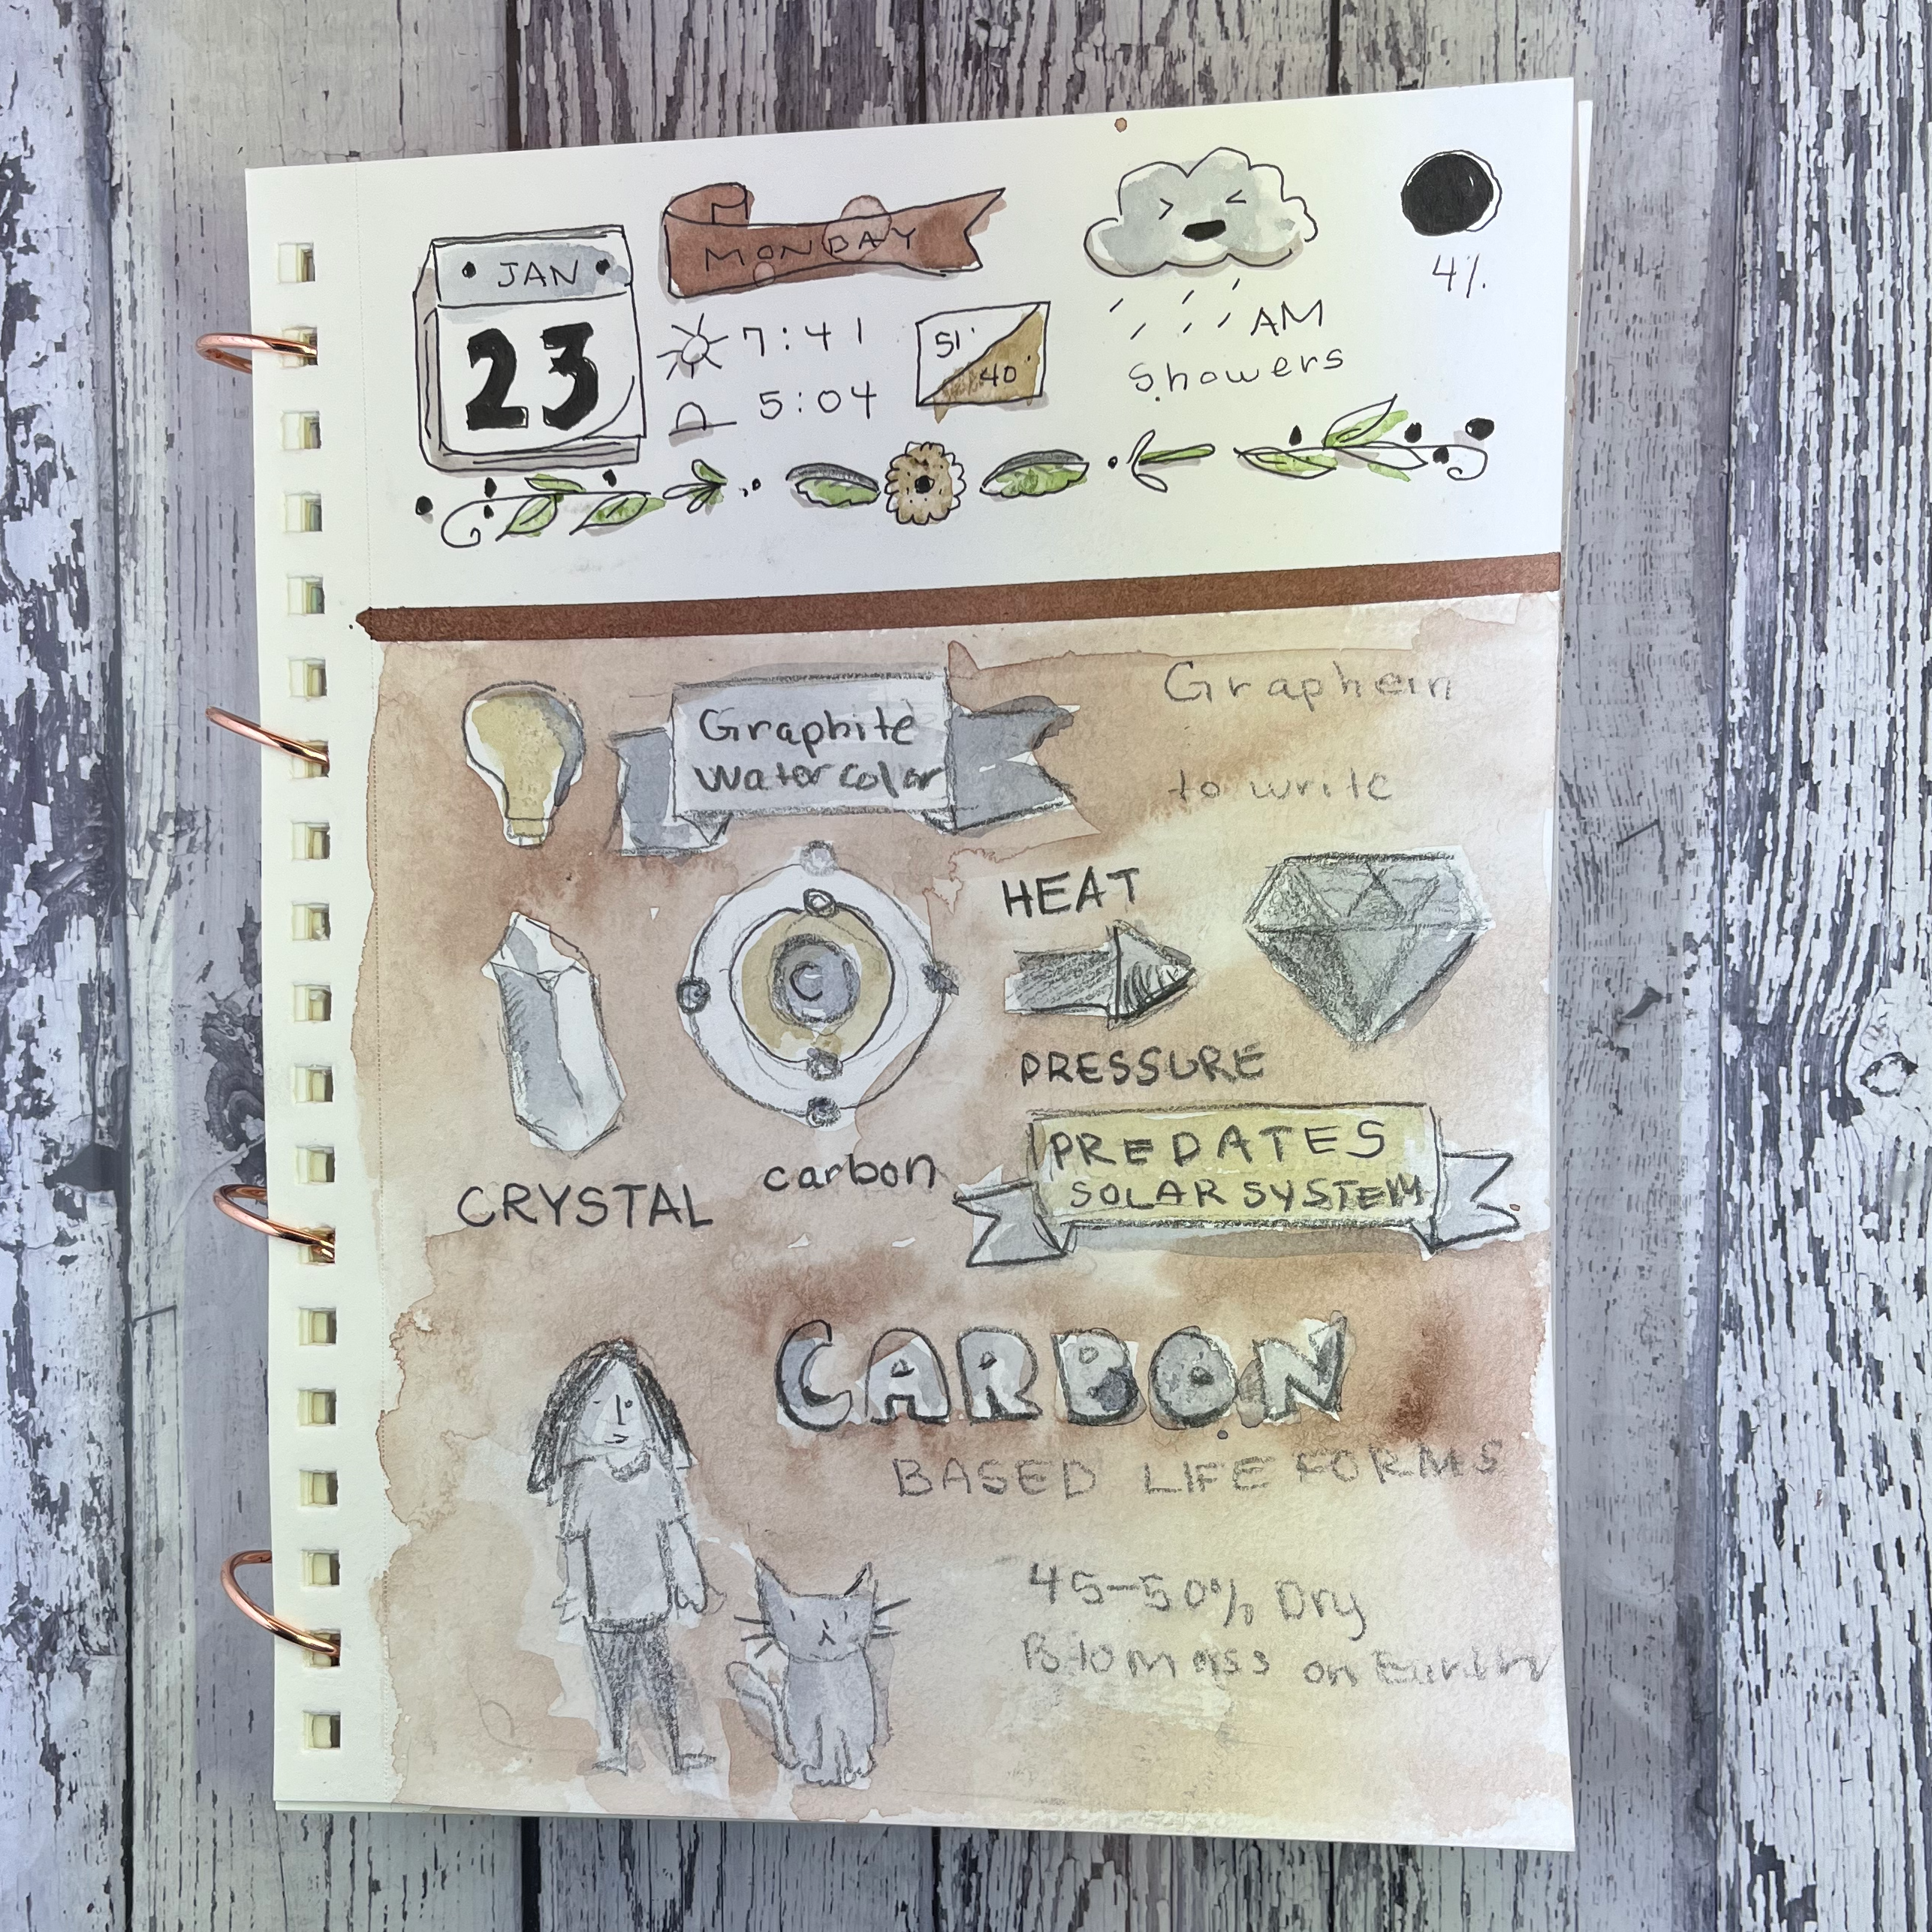 JAN
23
MONDAY
7:41
5:04
51°
40°
AM
Showers
4%
Graphite
Watercolor
Graphein
to write
HEAT
PRESSURE
C
CRYSTAL
carbon
PREDATES
SOLAR SYSTEM
CARBON
BASED LIFE FORMS
45-50% Dry
Biomass on Earth